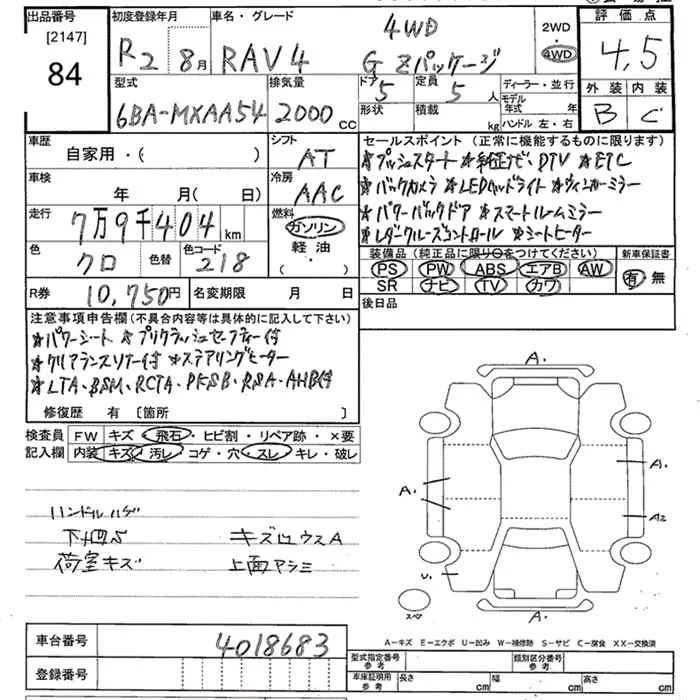 出品番号
[2147]
84
初度登録年月
R2 8月
車名・グレード
RAV4
4WD
G Zパッケージ
2WD
4WD
評価点
4,5
外装 内装
B C
型式
6BA-MXAA54
排気量
2000 cc
ドア
5
定員
5 人
形状
積載
kg
ディーラー・並行
モデル年式 年
ハンドル 左・右
車歴
自家用・( )
シフト
AT
車検
年 月(日)
冷房
AAC
走行
7万9千404 km
燃料
ガソリン
軽油
・( )
色
クロ
色替
色コード
218
R券
10,750円
名変期限 月 日
セールスポイント (正常に機能するものに限ります)
★プッシュスタート ★純正ナビ DTV ★ETC
★バックカメラ ★LEDヘッドライト ★ウィンカーミラー
★パワーバックドア ★スマートルームミラー
★レダクルーズコントロール ★シートヒーター
装備品 (純正品に限り○をつけてください)
PS PW ABS エアB AW
SR ナビ TV カワ
新車保証書
有 無
後日品
注意事項申告欄(不具合内容等は具体的に記入して下さい)
★パワーシート ★プリクラッシュセーフティー付
★クリアランスソナー付 ★ステアリングヒーター
★LTA・BSM・RCTA・PKSB・RSA・AHB付
修復歴 有 〔箇所 〕
検査員
記入欄
FW キズ・飛石・ヒビ割・リペア跡・×要
内装 キズ・汚レ・コゲ・穴・スレ・キレ・破レ
ハンドルハゲ
下廻サビ キズ凹ウスA
荷室キズ 上面アシミ
A・
A・
A・
A2
U・
A・
スペア
A-キズ E-エクボ U-凹み W-補修跡 S-サビ C-腐食 XX-交換済
車台番号
4018683
登録番号
型式指定番号
参考
類別区分番号
参考
車庫証明用
参考
長さ cm
幅 cm
高さ cm